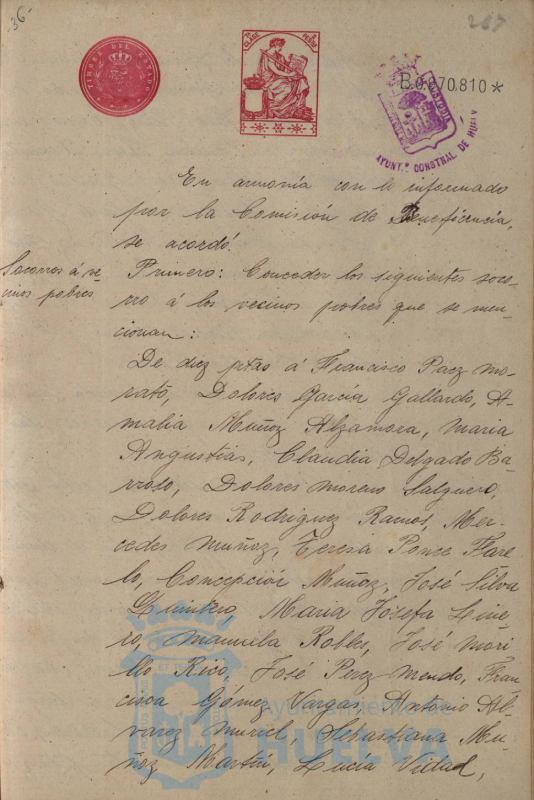 36
267
TIMBRE DEL ESTADO
CLASE
B.0.870.810 *
AYUNT.º CONSTNAL DE HUELVA
En armonía con lo informado
por la Comisión de Beneficencia,
se acordó.
Socorros á ve-
cinos pobres
Primero: Conceder los siguientes soco-
rro á los vecinos pobres que se men-
cionan:
De diez ptas á Francisco Paez Mo-
rato, Dolores García Gallardo, A-
malia Muñoz Alzamora, Maria
Angustias, Claudia Delgado Ba-
rroso, Dolores Moreno Salguero,
Dolores Rodriguez Ramos, Mer-
cedes Muñoz, Teresa Ponce Fare-
lo, Concepción Muñoz, José Silva
Quintero, Maria Josefa Line-
ro, Manuela Robles, José Mori-
llo Rico, José Perez Mendo, Fran-
cisca Gómez Vargas, Antonio Al-
varez Muriel, Sebastiana Mu-
ñoz Martín, Lucía Villad,
Ayuntamiento de
HUELVA